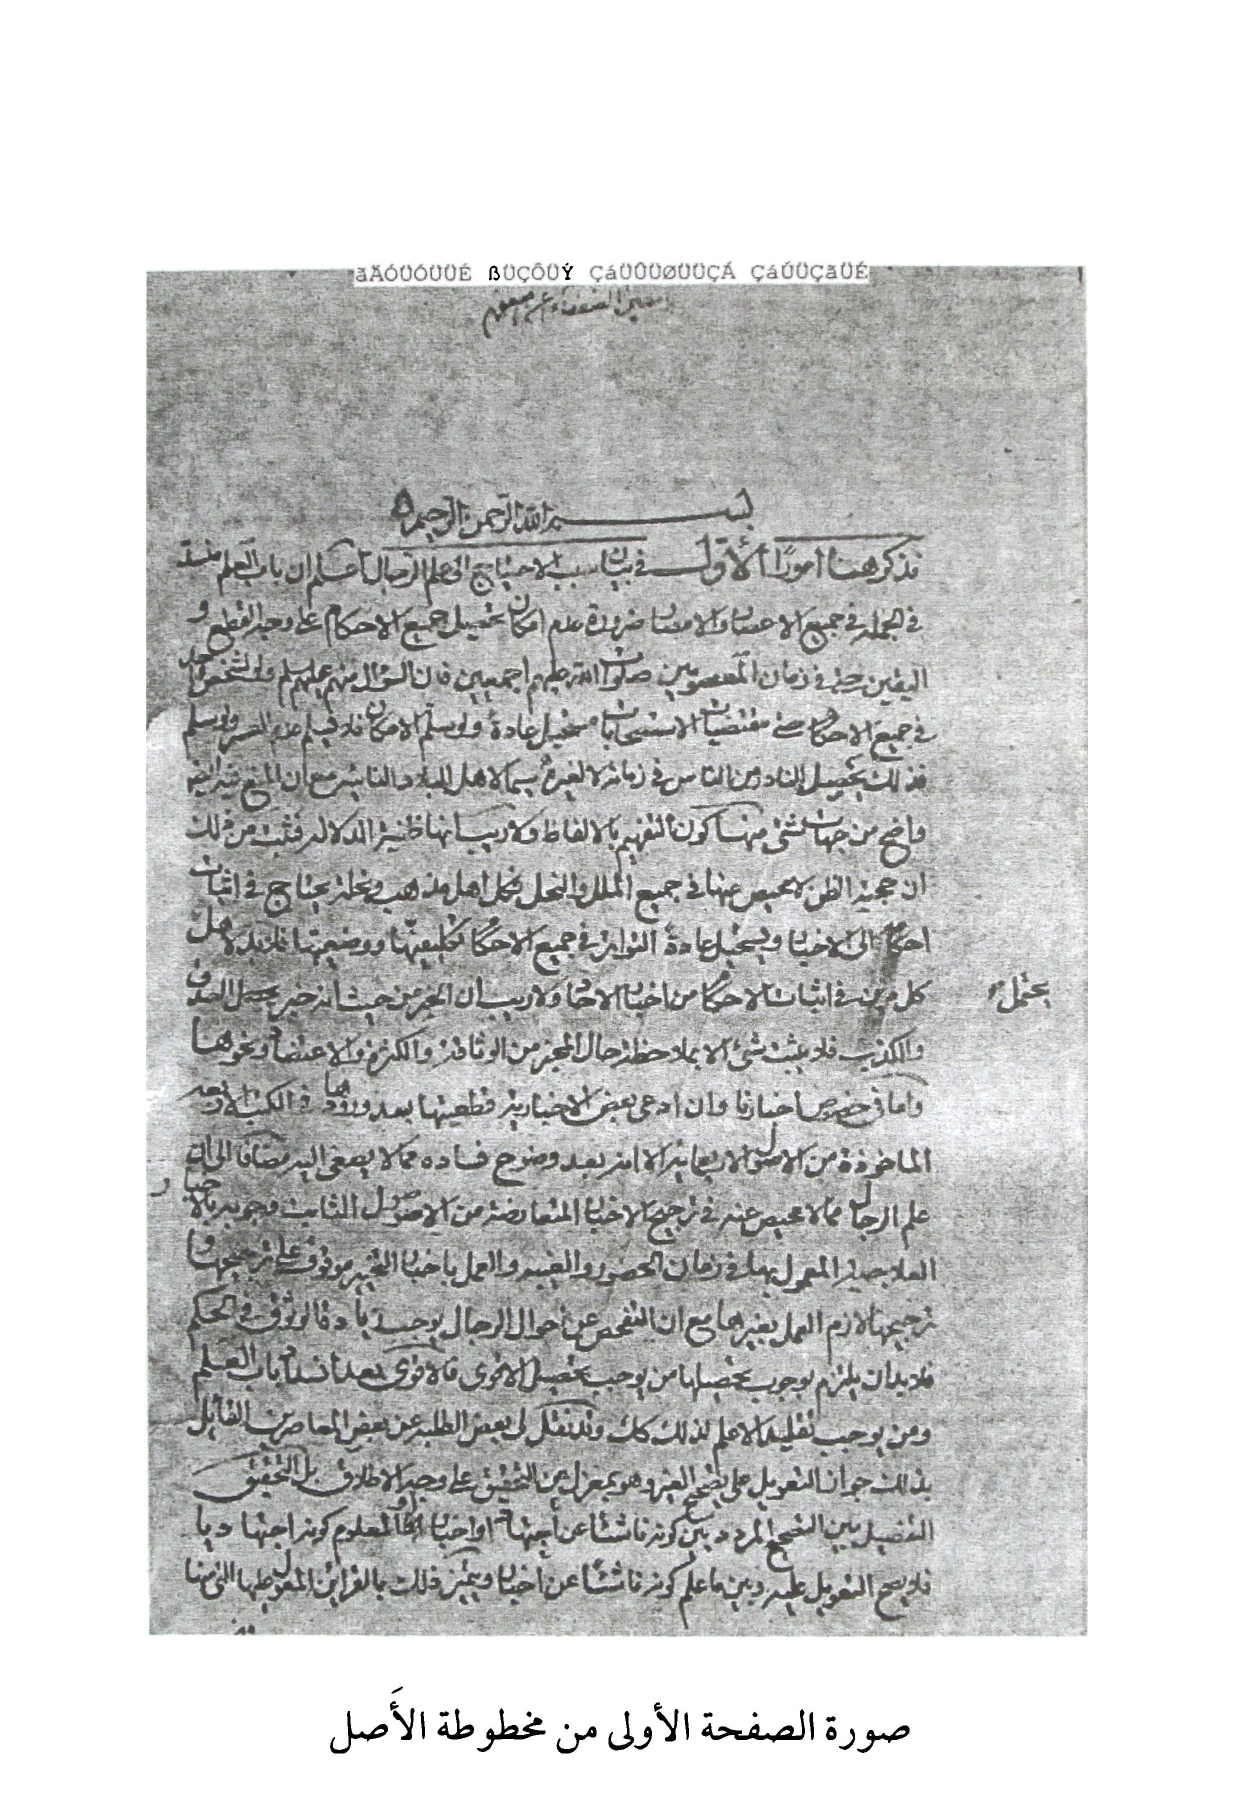 ãÄÓÜÓÜÜÉ ßÜÇÔÜÝ ÇáÜÛÜØÜÜÇÁ ÇáÚÜÇãÜÉ
بسم الله الرحمن الرحيم
فذكر هنا امورًا الأول في بيان سبب الاحتياج الى علم الرجال اعلم ان باب العلم منسد
في الجملة في جميع الاعصار والامصار ضرورة عدم امكان تحصيل جميع الاحكام على وجه القطع و
اليقين حتى في زمان المعصومين صلوات الله عليهم اجمعين فان السؤال منهم عليهم لم ولو لشخص واحد
في جميع الاحكام مستحيل عادة ولو سلم الامكان فلا يسلم عدم العسر ولو سلم
فذلك تحصيل النادر من الناس في زمانه لا لغيره سيما لاهل البلاد النائية مع ان المنع
واضح من جهات شتى منها كون التفهيم بالالفاظ ولا ريب انها ظنية الدلالة فثبت من ذلك
ان حجية الظن لا محيص عنها في جميع الملل والنحل فكل اهل مذهب ونحلة يحتاج في اثبات
احكامه الى الاخبار ويستحيل عادة التواتر في جميع الاحكام تكليفيها ووضعيها فلا بد لاهل
كل دين في اثبات الاحكام من اخبار الاحاد ولا ريب ان الخبر من حيث انه خبر يحتمل الصدق
يحتمل
والكذب فلا يثبت شئ الا بملاحظة حال المخبر من الوثاقة والكثرة والاعتضاد ونحوها
واما في خصوص اخبارنا وان ادعى بعض الاخبارية قطعيتها بعد ورودها في الكتب الاربعة
الماخوذة من الاصول الاربعمائة الا انه بعد وضوح فساده مما لا يصغى اليه مضافا الى ان
علم الرجال مما لا محيص عنه في ترجيح الاخبار المتعارضة من الاصول الثابت وجوبه بالاخبار
العلاجية المعمول بها في زمان الحضور والغيبة والعمل باخبار التخيير موقوف على ترجيحها و
ترجيحها لازم العمل بغيرها مع ان التفحص عن احوال الرجال يوجب زيادة الوثوق في الحكم
فلا بد ان يلتزم بوجوب تحصيلها من يوجب تحصيل الاقوى فالاقوى بعد انسداد باب العلم
ومن يوجب تقليد الاعلم لذلك كك وقد نقل لي بعض الطلبة عن بعض المعاصرين القائل
بذلك جواز التعويل على تصحيح الغير وهو بمعزل عن التحقيق على وجه الاطلاق بل التحقيق
التفصيل بين التصحيح المردد بين كونه ناشئا عن اجتهاد او اخبار او المعلوم كونه اجتهاديا
فلا يصح التعويل عليه وبين ما علم كونه ناشئًا عن اخبار ويتميز ذلك بالقرائن المعول عليها التي منها
صورة الصفحة الأولى من مخطوطة الأَصل